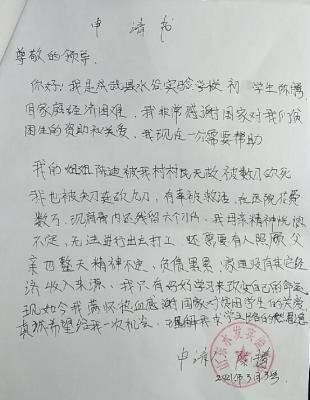 申请书
尊敬的领导:
你好!我是成武县水发实验学校初 学生陈腾
因家庭经济困难,我非常感谢国家对我们贫
困生的资助和关爱,我现在十分需要帮助
我的姐姐陈迪被我村村民无故被数刀砍死
我也被 刀连砍九刀,有幸被救活,在医院花费
数万,现背 内还残留六个 ,我母亲精神恍惚
不定,无法进行出去打工还需要有人照顾,父
亲也整天精神不定,负债累累,家里没有其它经
济收入来源,我只有好好学习来改变自己的命运,
现如今我满怀热血感谢国家对贫困学生的关爱
真 希望给我一次机会,理解我求学 的
申请人 陈腾
2021年3月3号